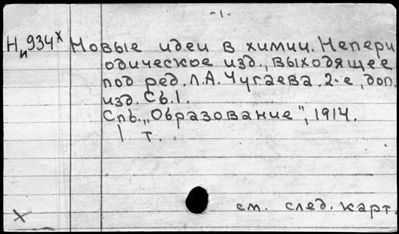 -1-
Ни934х Новые идеи в химии. Непери
одическое изд., выходящее
под ред. Л.А. Чугаева. 2-е, доп.
изд. Сб.1.
Спб., "Образование", 1914.
1 т.
см. след. карт.
х